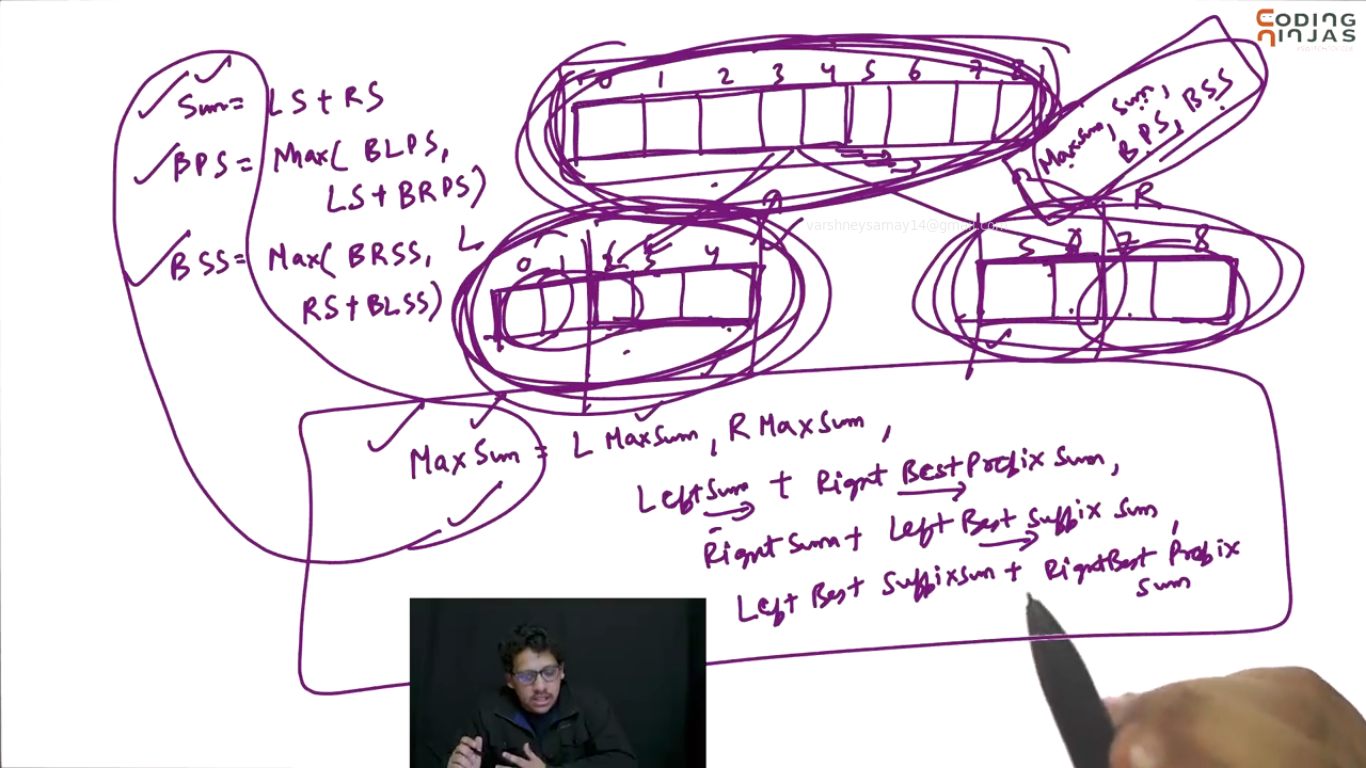 CODING
NINJAS
Sum = LS + RS
BPS = Max( BLPS,
LS + BRPS)
BSS = Max( BRSS,
RS + BLSS)
0 1 2 3 4 5 6 7 8
MaxSum, Sum,
BPS, BSS
varshneysamay14@gmail.com
L
R
0 1 2 3 4
5 6 7 8
MaxSum = L MaxSum, R MaxSum,
Left Sum + Right Best Prefix Sum,
Right Sum + Left Best Suffix Sum,
Left Best Suffix Sum + Right Best Prefix
Sum